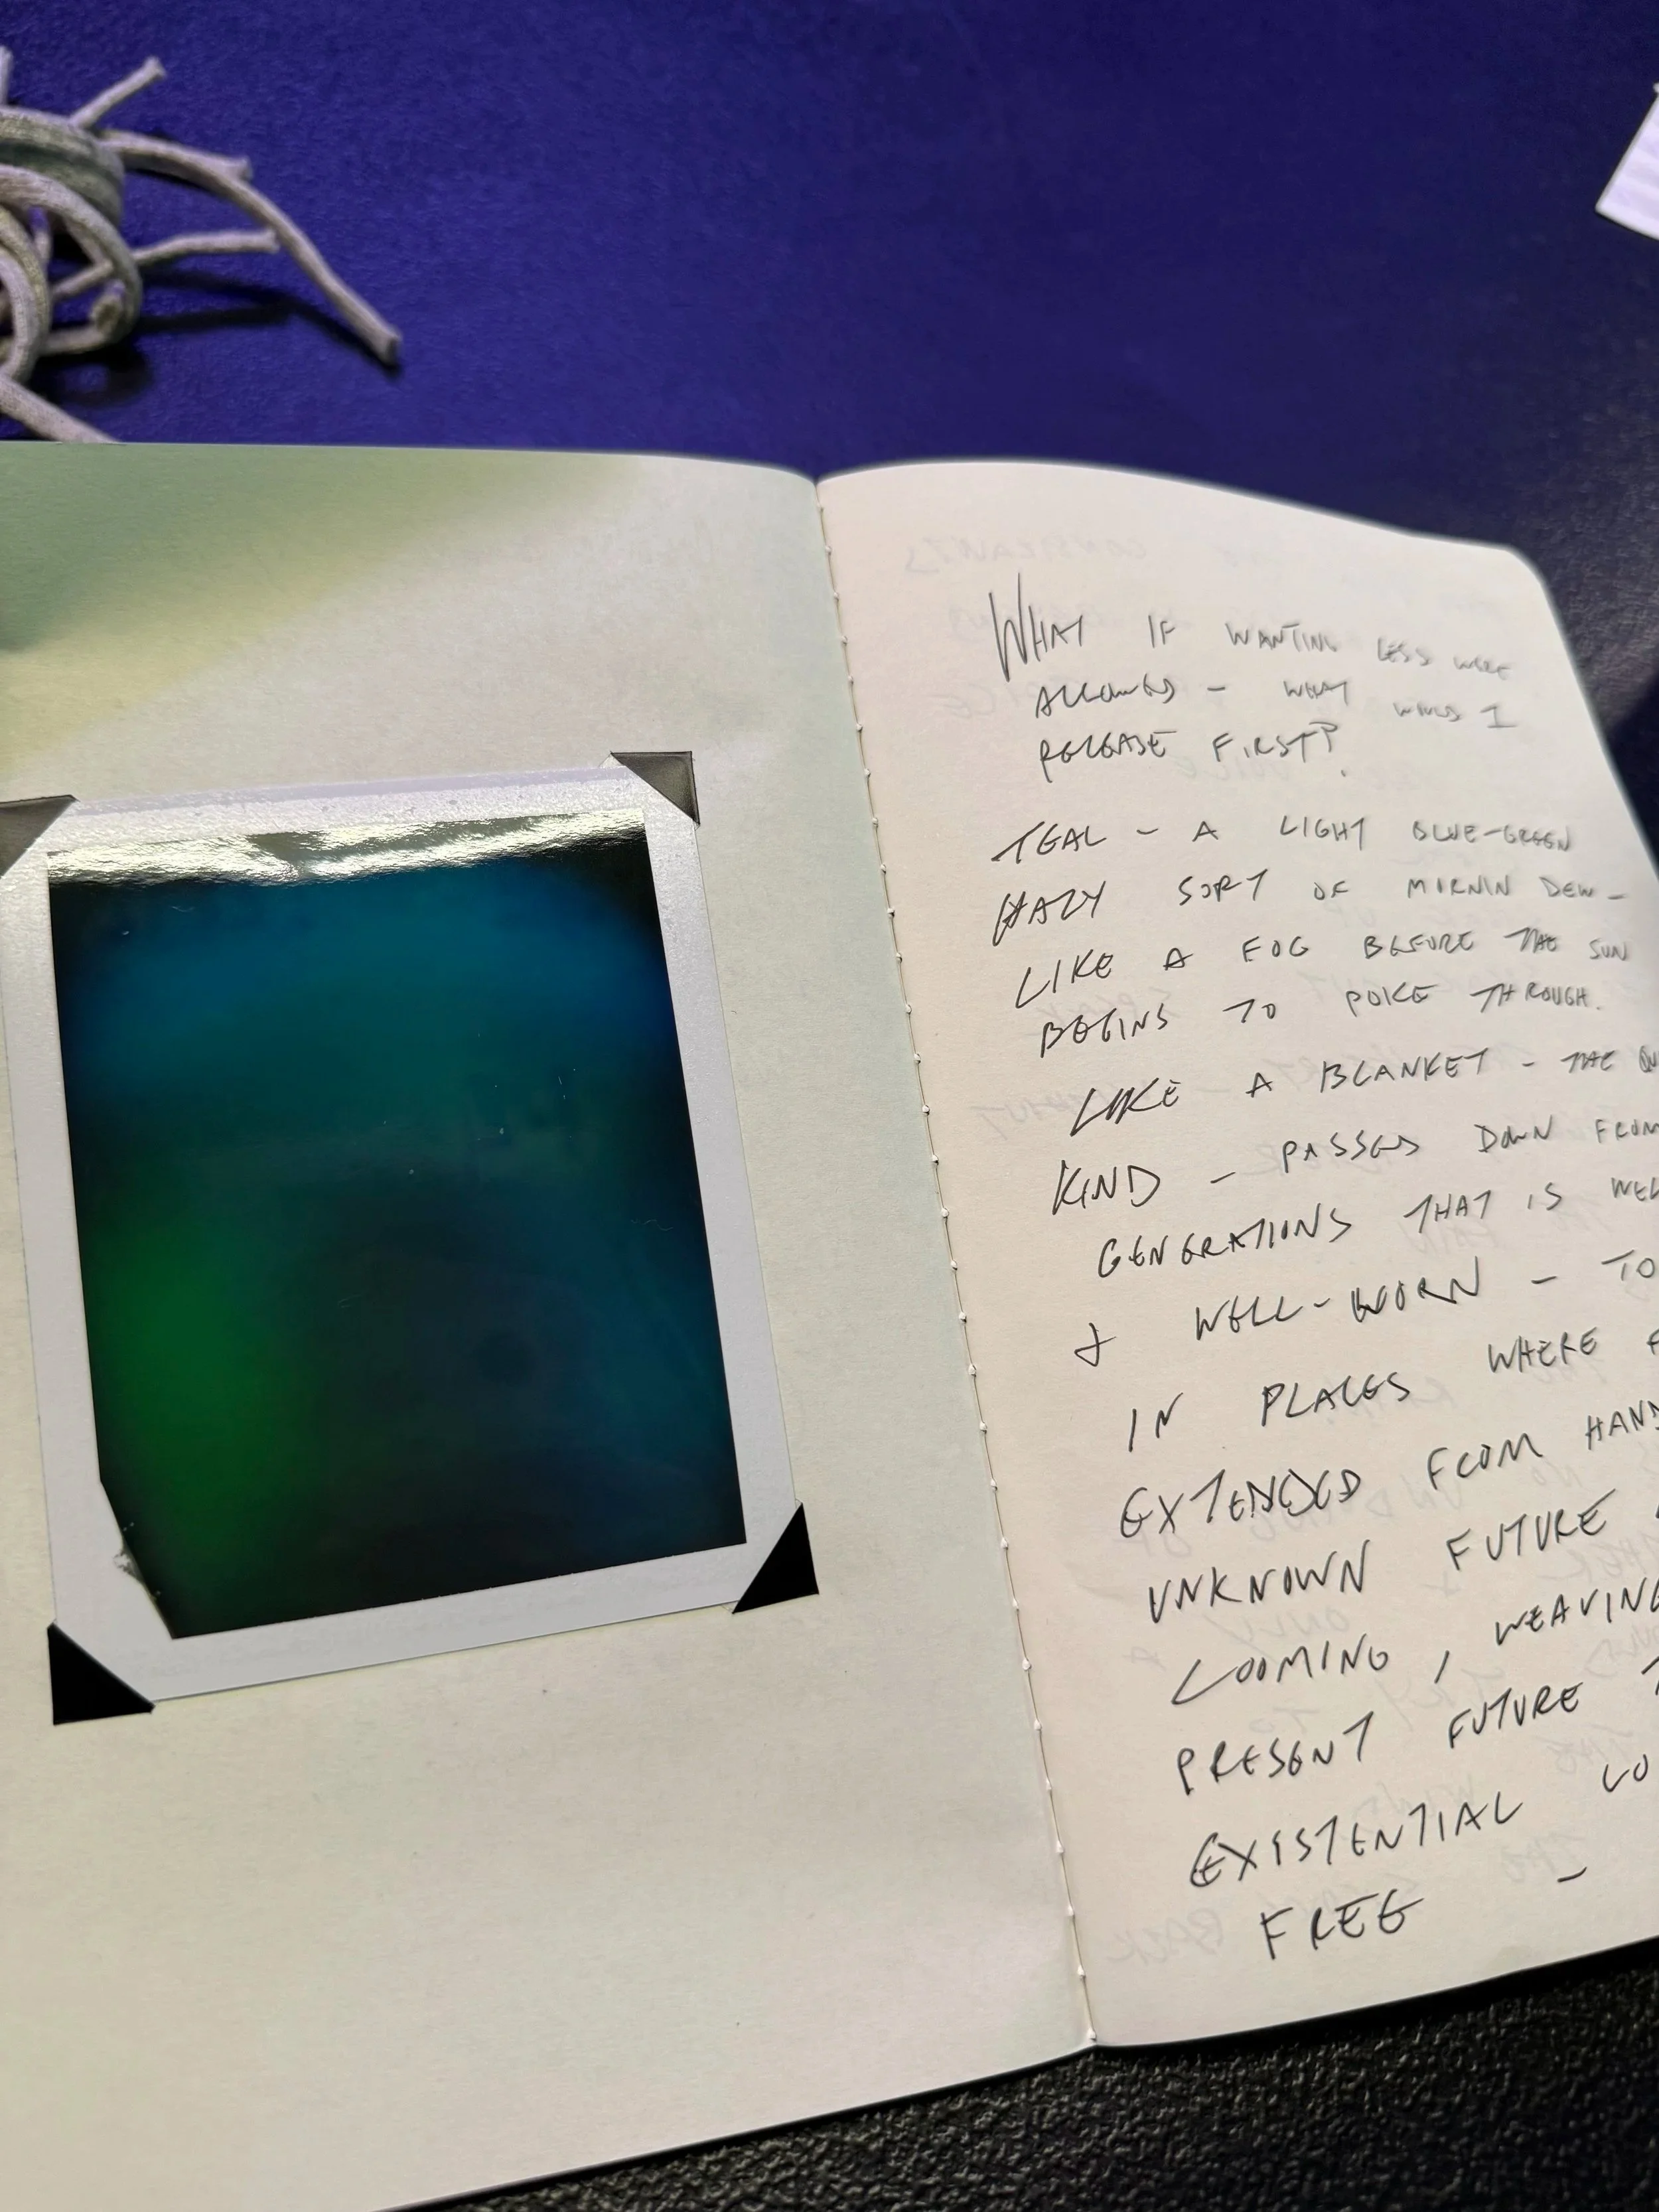 WHAT IF WANTING LESS WERE
ALLOWED - WHAT WOULD I
RELEASE FIRST?
TEAL - A LIGHT BLUE-GREEN
HAZY SORT OF MORNIN DEW -
LIKE A FOG BEFORE THE SUN
BEGINS TO POKE THROUGH.
LIKE A BLANKET - THE
KIND - PASSED DOWN FROM
GENERATIONS THAT IS
& WELL-WORN - TO
IN PLACES WHERE
EXTENDED FROM HAND
UNKNOWN FUTURE
LOOMING, WEAVING
PRESENT FUTURE
EXISTENTIAL
FREE -